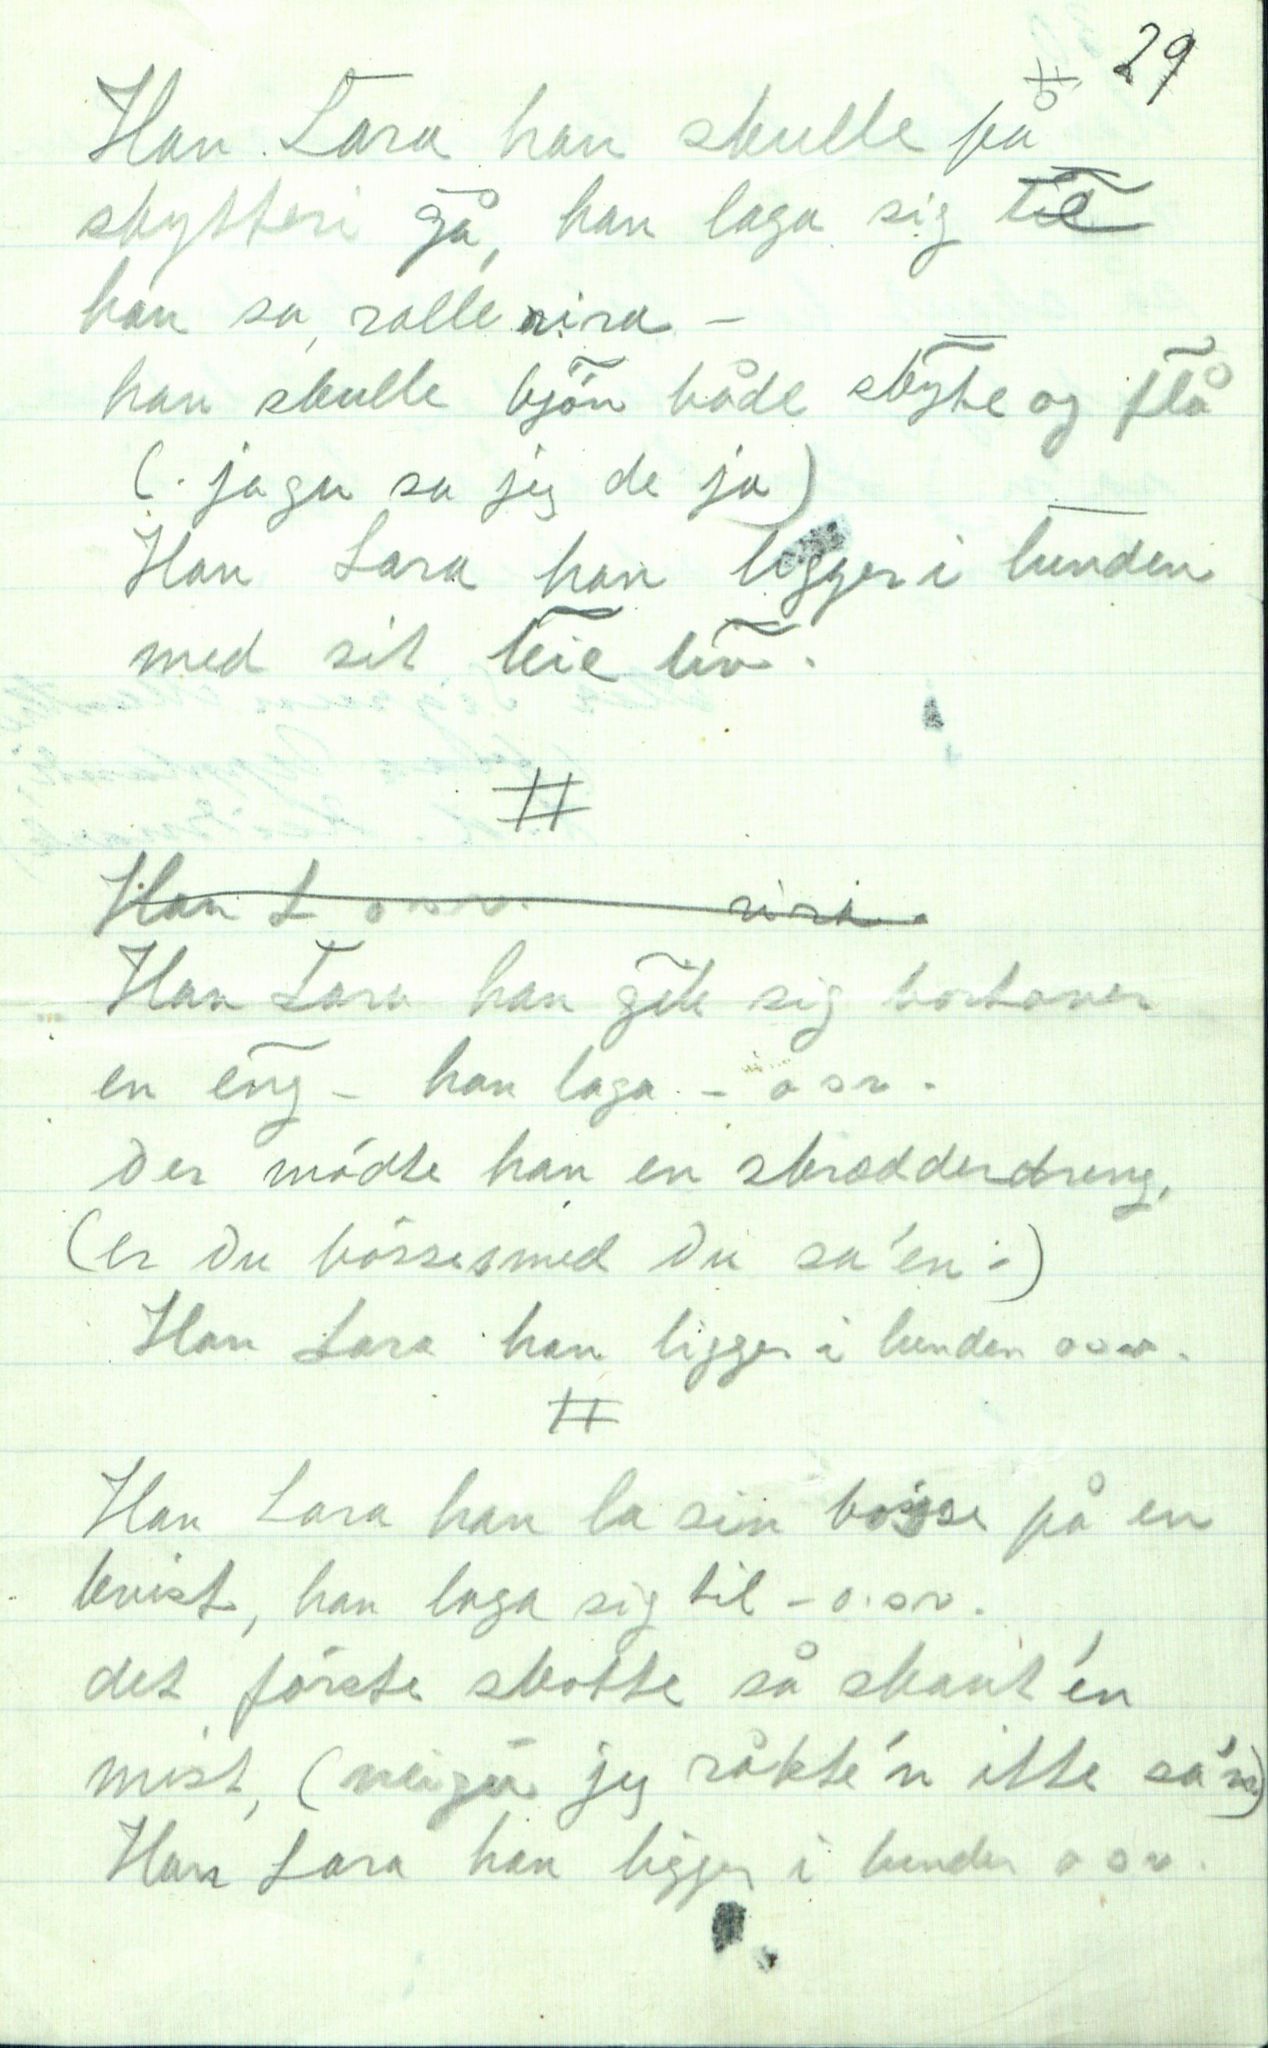 29
Han Lara han skulle på
skytteri gå, han laga sig til
han sa, ralle rira –
han skulle bjön både skyte og flå
(. jagu sa jeg de ja)
Han Lara han ligger i lunden
med sit leie liv.
#
Han L o s v. rira.
Han Lara han gik sig bortover
en eng – han laga – o s v.
Der mödte han en skrædderdreng,
(er Du bössesmed Du sa'en –)
Han Lara han ligger i lunden o s v.
#
Han Lara han la sin bösse på en
kvist, han laga sig til – o. s v.
det förste skotte så skaut'en
mist, (neigu jeg råkte'n itte sa'n)
Han Lara han ligger i lunden o s v.